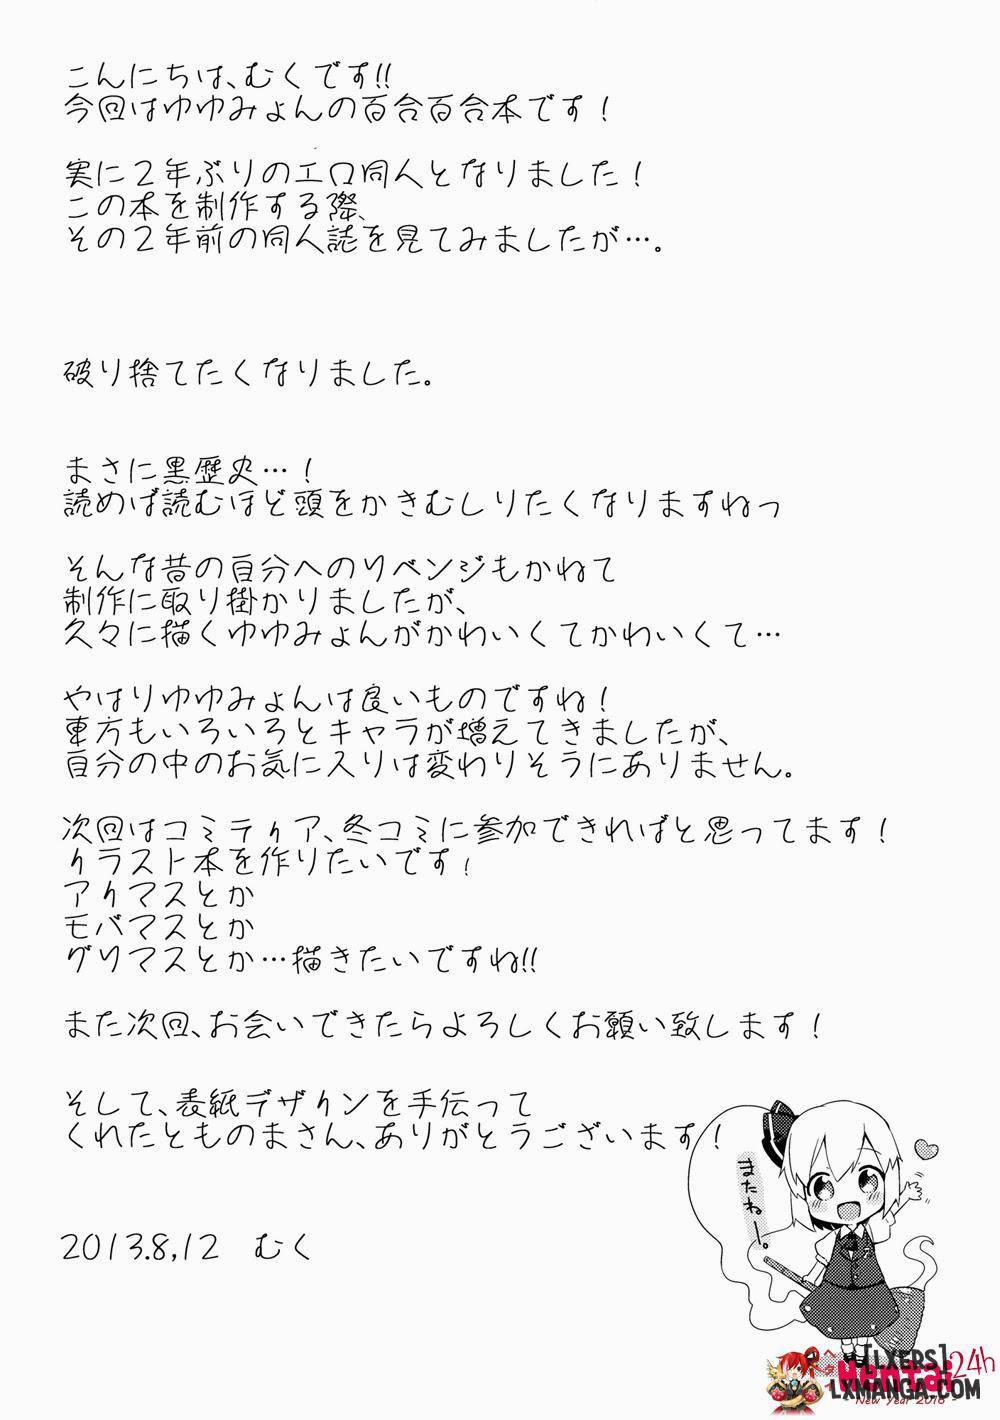 こんにちは、むくです!!
今回はゆゆみょんの百合百合本です！
実に２年ぶりのエロ同人となりました！
この本を制作する際、
その２年前の同人誌を見てみましたが…。
破り捨てたくなりました。
まさに黒歴史…！
読めば読むほど頭をかきむしりたくなりますねっ
そんな昔の自分へのリベンジもかねて
制作に取り掛かりましたが、
久々に描くゆゆみょんがかわいくてかわいくて…
やはりゆゆみょんは良いものですね！
東方もいろいろとキャラが増えてきましたが、
自分の中のお気に入りは変わりそうにありません。
次回はコミティア、冬コミに参加できればと思ってます！
イラスト本を作りたいです！
アイマスとか
モバマスとか
グリマスとか…描きたいですね!!
また次回、お会いできたらよろしくお願い致します！
そして、表紙デザインを手伝って
くれたとものまさん、ありがとうございます！
またねー。
2013.8,12　むく
[LXERS]
Hentai24h
LXMANGA.COM
New Year 2018